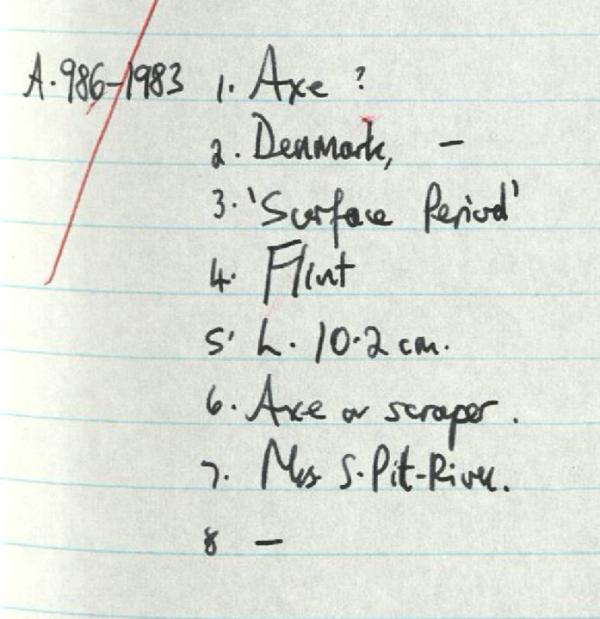 A.986-1983 1. Axe ?
2. Denmark, –
3. 'Surface Period'
4. Flint
5. L. 10.2 cm.
6. Axe or scraper.
7. Mrs. S. Pit-River.
8 –